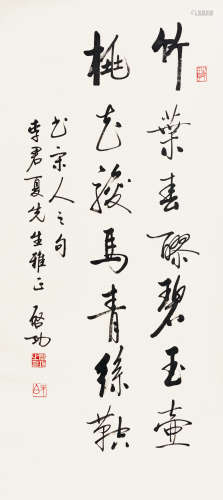 竹葉春醪碧玉壺
桃花駿馬青絲鞚
書宋人之句
李君夏先生雅正
啓功